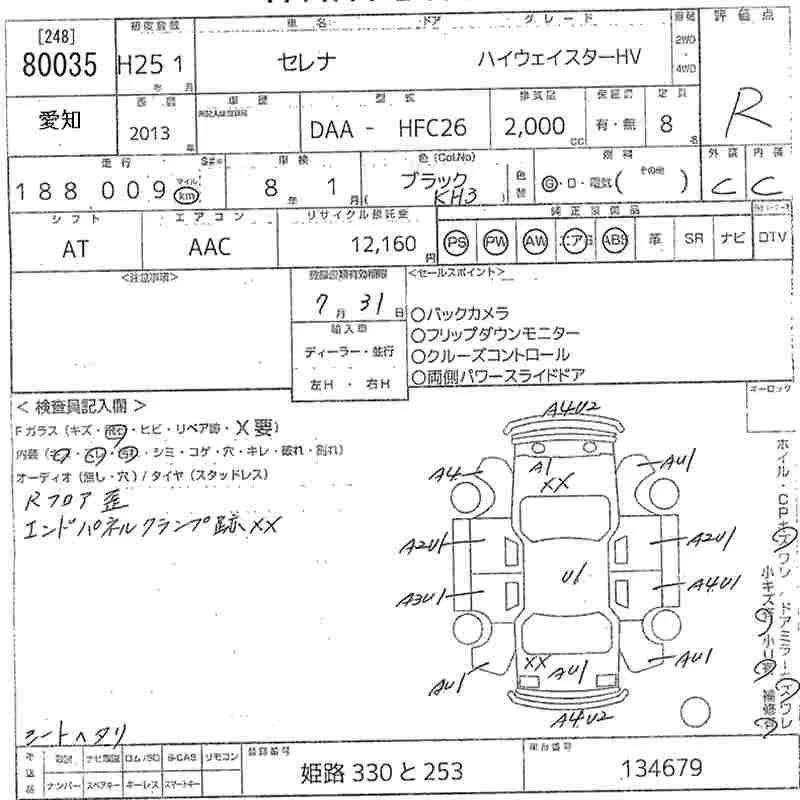 [248]
80035
初度登録
H25 1
年 月
車 名
ドア
グ レ ー ド
セレナ
ハイウェイスターHV
2WD
・
4WD
評 価 点
R
愛知
2013
年
車 歴
型 式
DAA - HFC26
排気量
2,000
CC
保証書
有・無
定 員
8
名
走 行
188 009
マイル
km
車 検
8 年 1 月
色 (Col.No)
ブラック
KH3
色替
燃 料
G・ロ・電気 ( その他 )
外 装
C
内 装
C
シ フ ト
AT
エ ア コ ン
AAC
リサイクル預託金
12,160
円
純 正 装 備 品
PS
PW
AW
エアB
ABS
革
SR
ナビ
DTV
<注意事項>
登録書類有効期限
7 月 31 日
輸 入 車
ディーラー・並行
左H ・ 右H
<セールスポイント>
○バックカメラ
○フリップダウンモニター
○クルーズコントロール
○両側パワースライドドア
キーロック
< 検査員記入欄 >
Fガラス (キズ・飛石・ヒビ・リペア跡・X要)
内装 (キズ・ヨゴレ・・シミ・コゲ・穴・キレ・破れ・割れ)
オーディオ (無し・穴) / タイヤ (スタッドレス)
Rフロア歪
エンドパネルクランプ跡XX
シートヘタリ
A4U2
A1
XX
A4
AU1
A2U1
A2U1
U1
A3U1
A4U1
XX
AU1
AU1
AU1
A4U2
ホイル・CPキズワレ/ドアミラーキズワレ
小キズ有 小U有 補修有
取説
ナビ取説
ロム/SD
B-CAS
リモコン
ナンバー
スペアキー
キーレス
スマートキー
登録番号
姫路 330 と 253
車台番号
134679